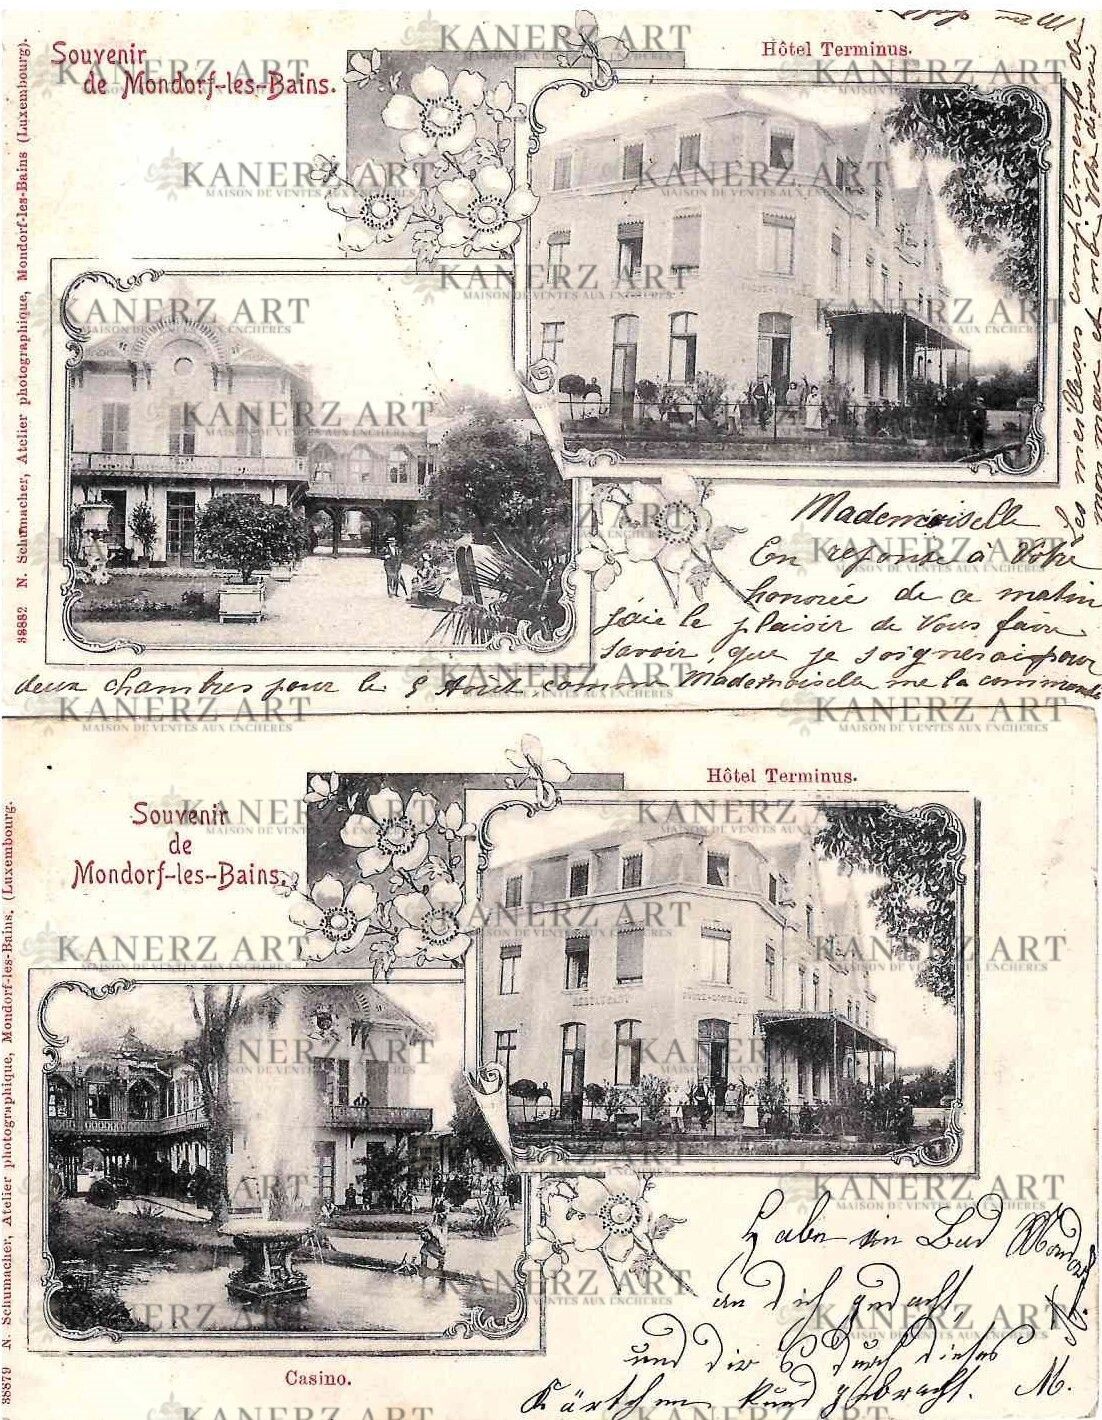 Souvenir
de Mondorf-les-Bains.
Hôtel Terminus.
38882 N. Schumacher, Atelier photographique, Mondorf-les-Bains (Luxembourg).
Mademoiselle
En reponse à Votre
honorée de ce matin
j'aie le plaisir de Vous faire
savoir, que je soignerai pour
deux chambres pour le 5 Août comme Mademoiselle me la commande
Les meilleures compliments de
mon mari et votre dévouée
Souvenir
de
Mondorf-les-Bains.
Hôtel Terminus.
RESTAURANT
38879 N. Schumacher, Atelier photographique, Mondorf-les-Bains. (Luxembourg.
Casino.
Habe in Bad Mondorf
an dich gedacht
und dir durch dieses
Kärtchen kund gebracht. M.
KANERZ ART
MAISON DE VENTES AUX ENCHÈRES